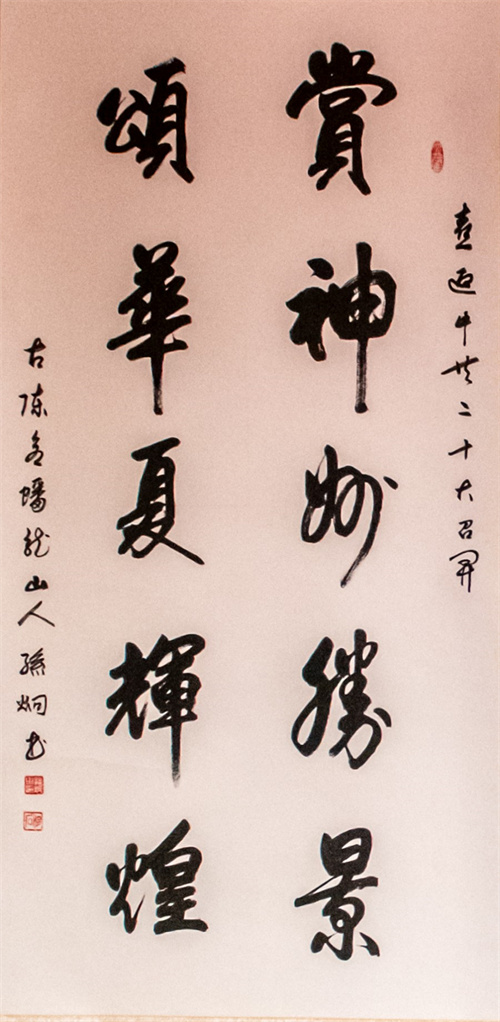 喜迎中共二十大召開
賞神妙勝景
頌華夏輝煌
古陳倉蟠龍山人孫炯書